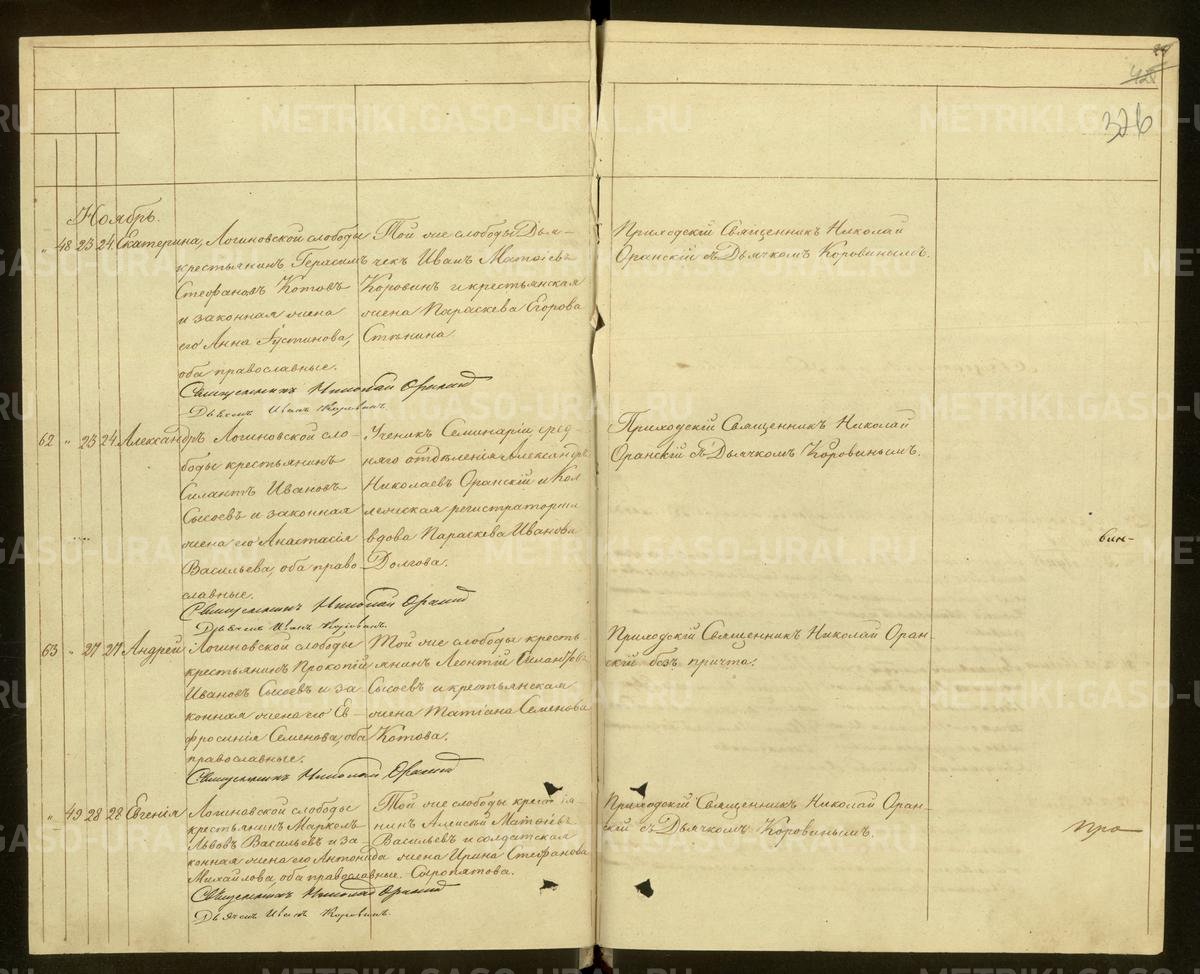 42
326
Ноябрь.
" 48 23 24 Екатерина, Логиновской слободы
крестьянинъ Герасимъ
Стефановъ Котовъ
и законная жена
его Анна Іустинова,
оба православные.
Той же слободы Дья-
чекъ Иванъ Матѳіевъ
Коровинъ и крестьянская
жена Параскева Егорова
Стѣнина.
Приходскій Священникъ Николай
Оранскій съ Дьячкомъ Коровинымъ.
Священникъ Николай Оранскій
Дьячекъ Иванъ Коровинъ.
62 " 23 24 Александръ Логиновской сло-
боды крестьянинъ
Силантъ Ивановъ
Сысоевъ и законная
жена его Анастасія
Васильева, оба право-
славные.
Ученикъ Семинаріи сред-
няго отдѣленія Александръ
Николаевъ Оранскій и Кол
лежская регистраторша
вдова Параскева Иванова
Долгова.
Приходскій Священникъ Николай
Оранскій съ Дьячкомъ Коровинымъ.
бин-
Священникъ Николай Оранскій
Дьячекъ Иванъ Коровинъ.
63 " 27 27 Андрей Логиновской слободы
крестьянинъ Прокопій
Ивановъ Сысоевъ и за-
конная жена его Ев-
фросинія Семенова, оба
православные.
Той же слободы кресть
янинъ Леонтій Силантьевъ
Сысоевъ и крестьянская
жена Татіана Семенова
Котова.
Приходскій Священникъ Николай Оран-
скій безъ причта.
Священникъ Николай Оранскій
" 49 28 28 Евгенія Логиновской слободы
крестьянинъ Маркелъ
Львовъ Васильевъ и за-
конная жена его Антонида
Михайлова, оба православные.
Той же слободы крестья-
нинъ Алексѣй Матѳіевъ
Васильевъ и солдатская
жена Ирина Стефанова
Сыропятова.
Приходскій Священникъ Николай Оран-
скій съ Дьячкомъ Коровинымъ.
про
Священникъ Николай Оранскій
Дьячекъ Иванъ Коровинъ.
METRIKI.GASO-URAL.RU